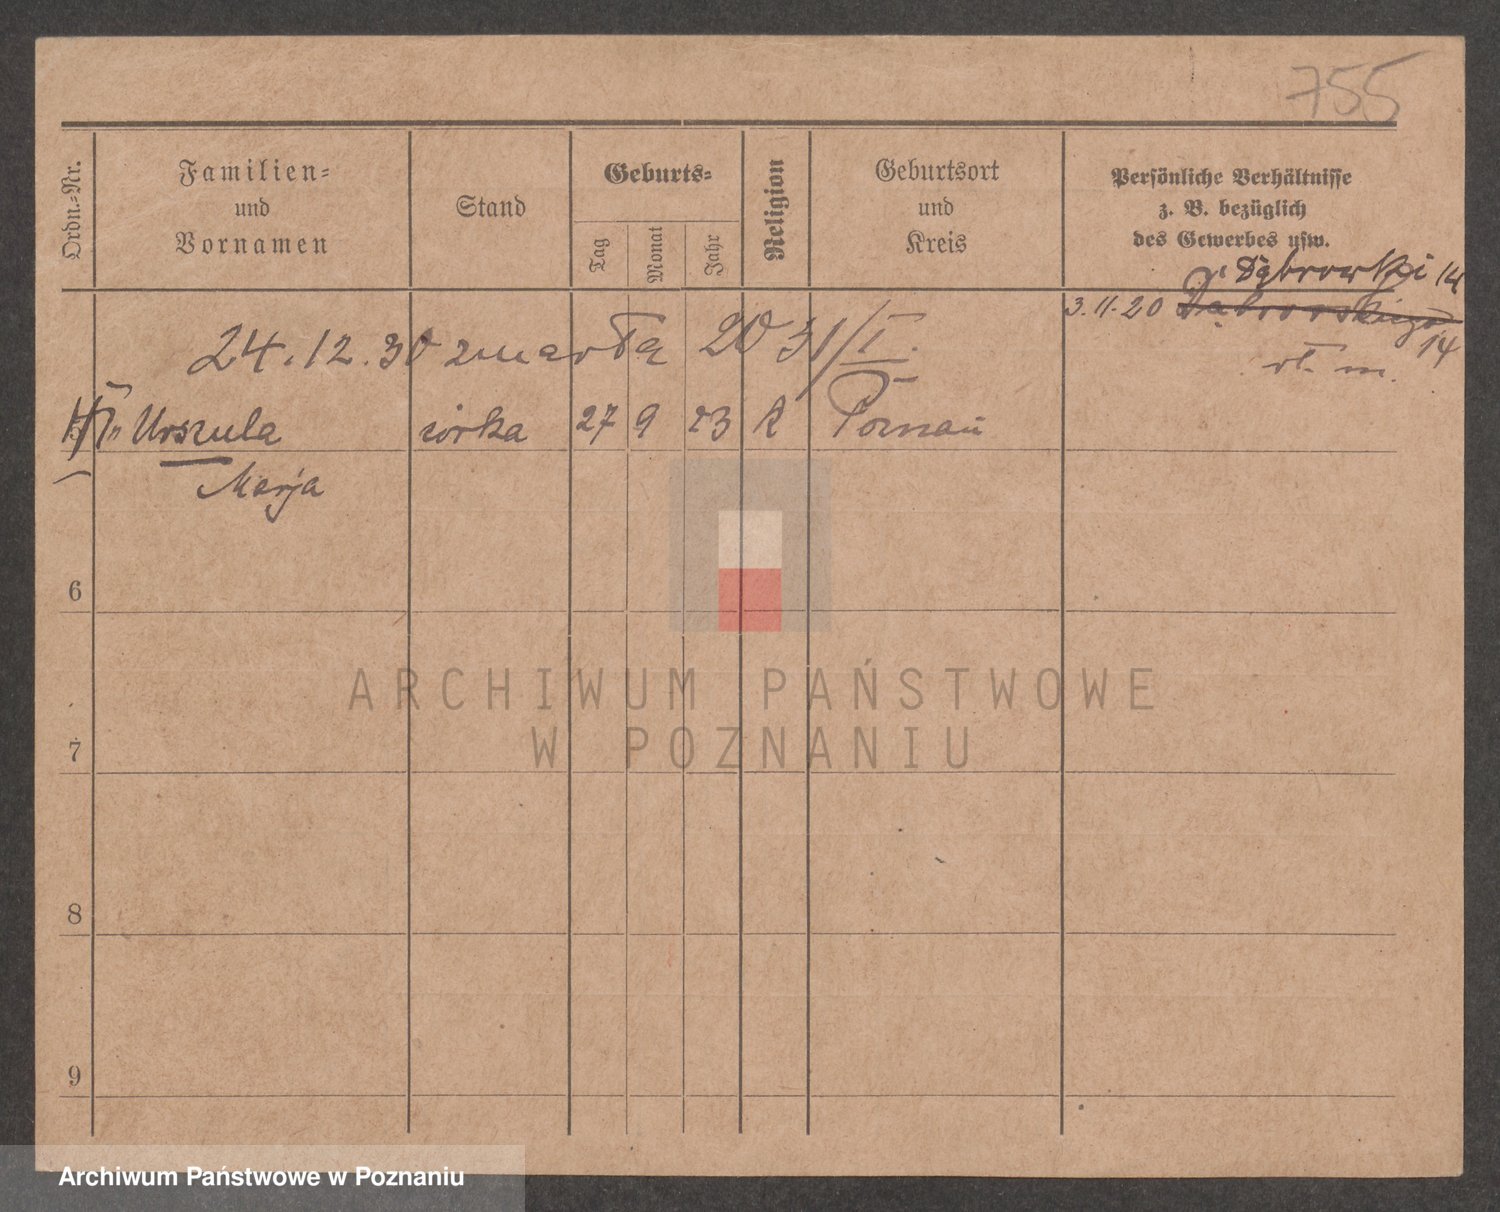 755
Ordn.-Nr.
Familien-
und
Vornamen
Stand
Geburts-
Tag
Monat
Jahr
Religion
Geburtsort
und
Kreis
Persönliche Verhältnisse
z. B. bezüglich
des Gewerbes usw.
Dąbrowski 14
3.11.20 Dąbrowskiego
14
24.12.30 zmarła 20 31/I.
Urszula córka 27 9 23 k Poznań
Marja
6
7
8
9
ARCHIWUM PAŃSTWOWE
W POZNANIU
Archiwum Państwowe w Poznaniu